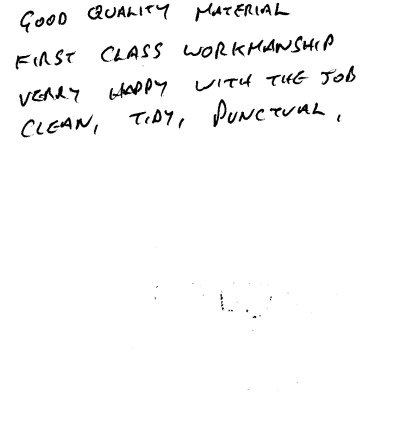 GOOD QUALITY MATERIAL
FIRST CLASS WORKMANSHIP
VERRY HAPPY WITH THE JOB
CLEAN, TIDY, PUNCTUAL,